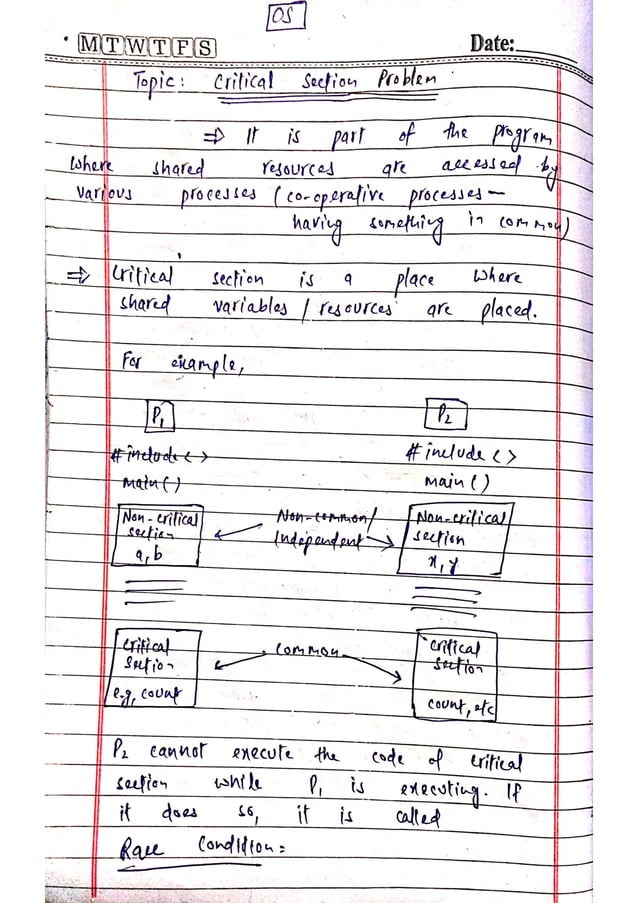 OS
M T W T F S
Date:
Topic: Critical Section Problem
⇒ It is part of the program
where shared resources are accessed by
various processes (co-operative processes –
having something in common)
⇒ Critical section is a place where
shared variables / resources are placed.
For example,
P1 P2
#include < > #include < >
main() main()
Non-critical section a, b
Non-common/ Independent
Non-critical section x, y
Critical Section e.g, count
common
Critical Section count, etc
P2 cannot execute the code of critical
section while P1 is executing. If
it does so, it is called
Race Condition: